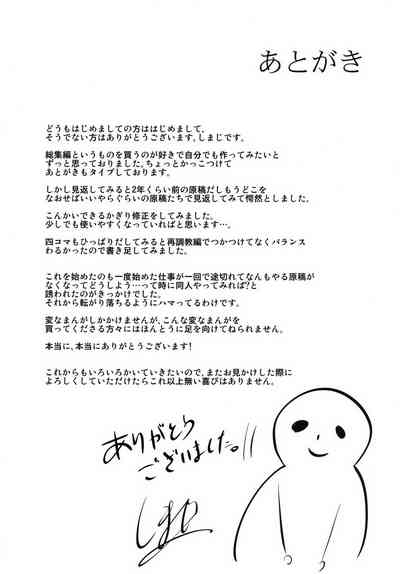 あとがき
どうもはじめましての方ははじめまして。
そうでない方はありがとうございます、しまじです。
総集編というものを買うのが好きで自分でも作ってみたいと
ずっと思っておりました。ちょっとかっこつけて
あとがきもタイプしております。
しかし見返してみると2年くらい前の原稿だしもうどこを
なおせばいいやらぐらいの原稿たちで見返してみて愕然としました。
こんかいできるかぎり修正をしてみました。
少しでも使いやすくなっていればと思います…。
四コマもひっぱりだしてみると再調教編でつかつけてなくバランス
わるかったので書き足してみました。
これを始めたのも一度始めた仕事が一回で途切れてなんもやる原稿が
なくなってどうしよう…って時に同人やってみれば?と
誘われたのがきっかけでした。
それから転がり落ちるようにハマってるわけです。
変なまんがしかかけませんが、こんな変なまんがを
買ってくださる方々にはほんとうに足を向けてねられません。
本当に、本当にありがとうございます!
これからもいろいろかいていきたいので、またお見かけした際に
よろしくしていただけたらこれ以上無い喜びはありません。
ありがとう
ございました。